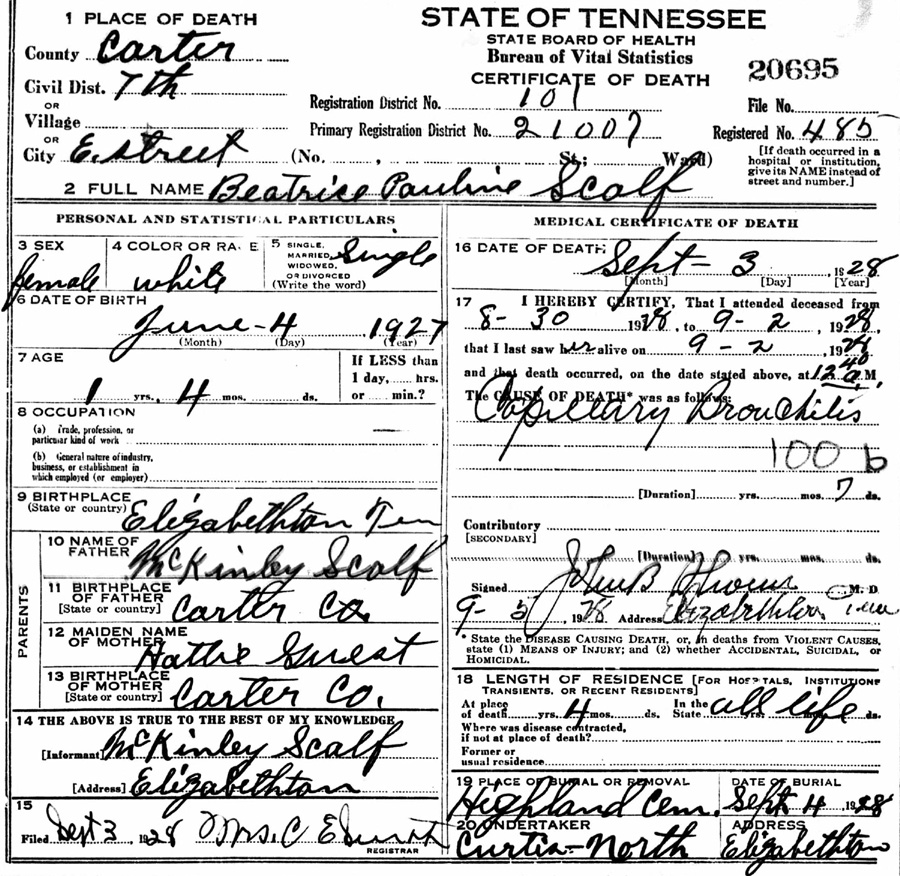 STATE OF TENNESSEE
STATE BOARD OF HEALTH
Bureau of Vital Statistics
CERTIFICATE OF DEATH
20695
1 PLACE OF DEATH
County Carter
Civil Dist. 7th
OR
Village
OR
City E. street (No. , St.; Ward)
Registration District No. 101
Primary Registration District No. 21007
File No.
Registered No. 485
[If death occurred in a hospital or institution, give its NAME instead of street and number.]
2 FULL NAME Beatrice Pauline Scalf
PERSONAL AND STATISTICAL PARTICULARS
3 SEX female
4 COLOR OR RACE white
5 SINGLE, MARRIED, WIDOWED, OR DIVORCED (Write the word) Single
6 DATE OF BIRTH
June - 4 1927
(Month) (Day) (Year)
7 AGE
1 yrs. 4 mos. ds.
If LESS than 1 day, hrs. or min.?
8 OCCUPATION
(a) Trade, profession, or particular kind of work —
(b) General nature of industry, business, or establishment in which employed (or employer)
9 BIRTHPLACE
(State or country) Elizabethton Ten
PARENTS
10 NAME OF FATHER McKinley Scalf
11 BIRTHPLACE OF FATHER [State or country] Carter Co.
12 MAIDEN NAME OF MOTHER Hattie Guest
13 BIRTHPLACE OF MOTHER [State or country] Carter Co.
14 THE ABOVE IS TRUE TO THE BEST OF MY KNOWLEDGE
[Informant] McKinley Scalf
[Address] Elizabethton
15
Filed Sept 3 1928 Mrs. C E
REGISTRAR
MEDICAL CERTIFICATE OF DEATH
16 DATE OF DEATH
Sept - 3 1928
[Month] [Day] [Year]
17 I HEREBY CERTIFY, That I attended deceased from
8 - 30 1928, to 9 - 2, 1928,
that I last saw her alive on 9 - 2, 1928
and that death occurred, on the date stated above, at 12 40 a.M.
The CAUSE OF DEATH* was as follows:
Capillary Bronchitis
100 b
[Duration] yrs. mos. 7 ds.
Contributory
[SECONDARY]
[Duration] yrs. mos. ds.
Signed John B M. D.
9 - 3 1928 Address Elizabethton Tenn
* State the DISEASE CAUSING DEATH, or, in deaths from VIOLENT CAUSES, state (1) MEANS OF INJURY; and (2) whether ACCIDENTAL, SUICIDAL, or HOMICIDAL.
18 LENGTH OF RESIDENCE [FOR HOSPITALS, INSTITUTIONS TRANSIENTS, OR RECENT RESIDENTS]
At place of death yrs. 4 mos. ds. In the State all life yrs. mos. ds.
Where was disease contracted, if not at place of death?
Former or usual residence
19 PLACE OF BURIAL OR REMOVAL
Highland Cem.
DATE OF BURIAL
Sept 4 1928
20 UNDERTAKER
Curtis-North
ADDRESS
Elizabethton